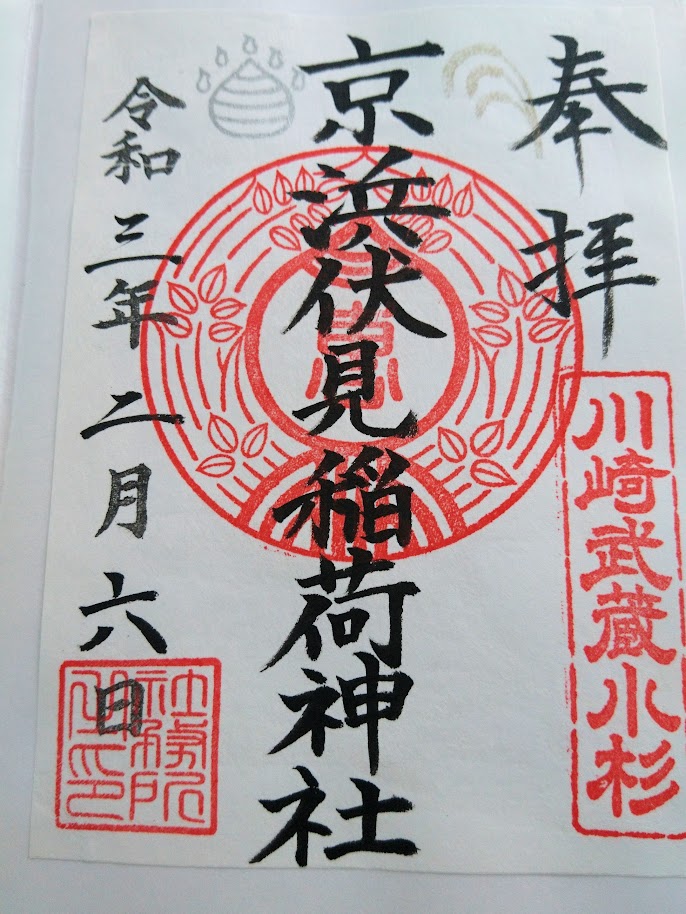 奉拝
川崎武蔵小杉
京浜伏見稲荷神社
令和三年二月六日
社務所之印